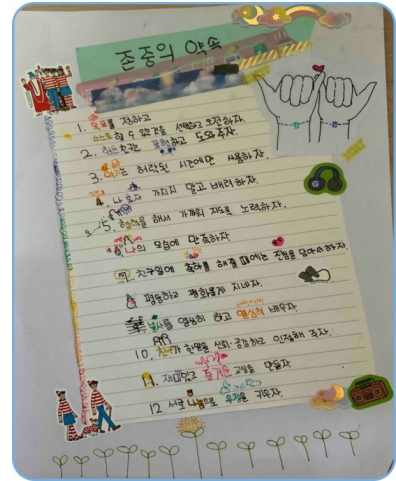 존중의 약속
1. 목표를 정하고
스스로 할 수 있는 것을 선택하고 도전하자.
2. 하고 도와주자.
3. 허락된 시간에만 사용하자.
4. 나 혼자 가지지 말고 배려하자.
5. 협력을 해서 가까워 지도록 노력하자.
6. 나의 모습에 만족하자.
친구일에 축하를 해줄 때에는 진심을 담아 하자.
평등하고 평화롭게 지내자.
봉사를 열심히 하고 열심히 배우자.
10. 친구가 한 말을 신뢰·공감하고 인정해 주자.
11. 재미있고 즐거운 교실을 만들자.
12. 서로 나눔으로 우정을 키우자.